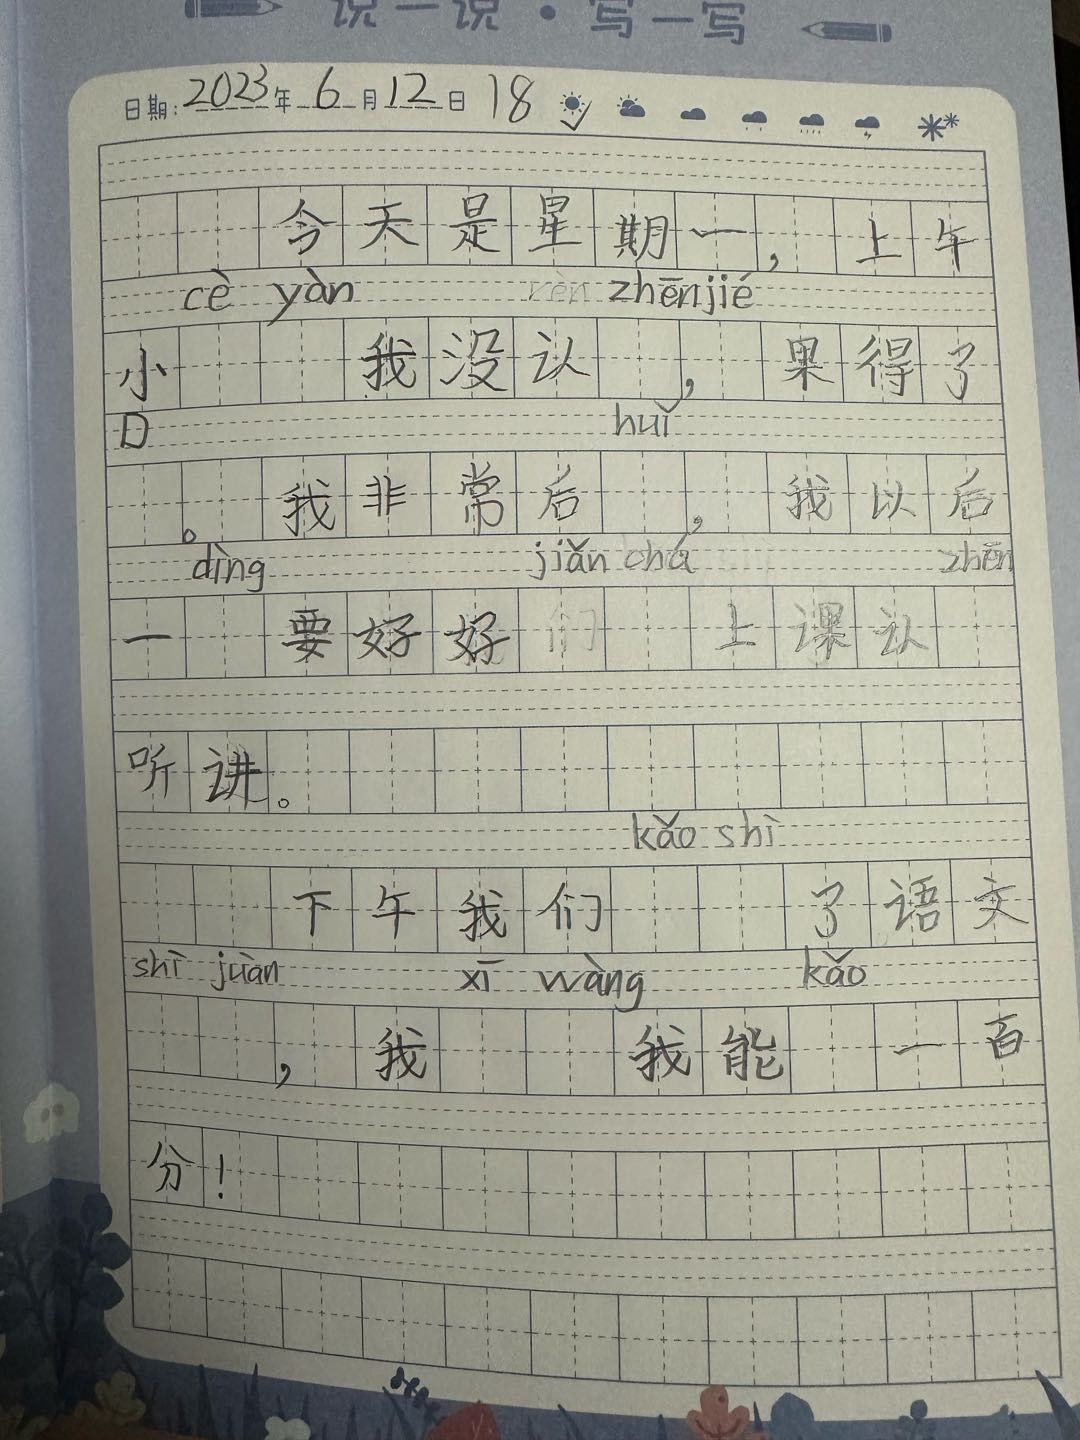 说一说·写一写
日期:2023年6月12日 18
今天是星期一,上午
cè yàn rèn zhēnjié
小我没认,果得了
D huǐ
。我非常后,我以后
dìng jiǎn chá zhēn
一要好好们上课认
听讲。
kǎo shì
下午我们了语文
shì juàn xī wàng kǎo
,我我能一百
分!